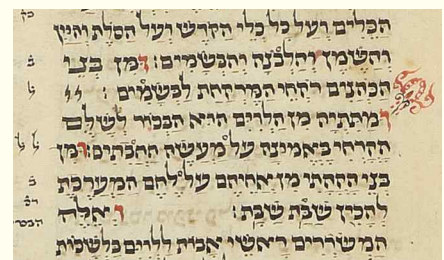 הכלים ועל כל כלי הקדש ועל הסלת והיין
והשמן והלבנה והבשמים: ומן בני
הכהנים רקחי המרקחת לבשמים:
ומתתיה מן הלוים הוא הבכור לשלם
הקרחי באמונה על מעשה החבתים: ומן
בני הקהתי מן אחיהם על לחם המערכת
להכין שבת שבת: ו אלה
המשררים ראשי אבות ללוים בלשכות